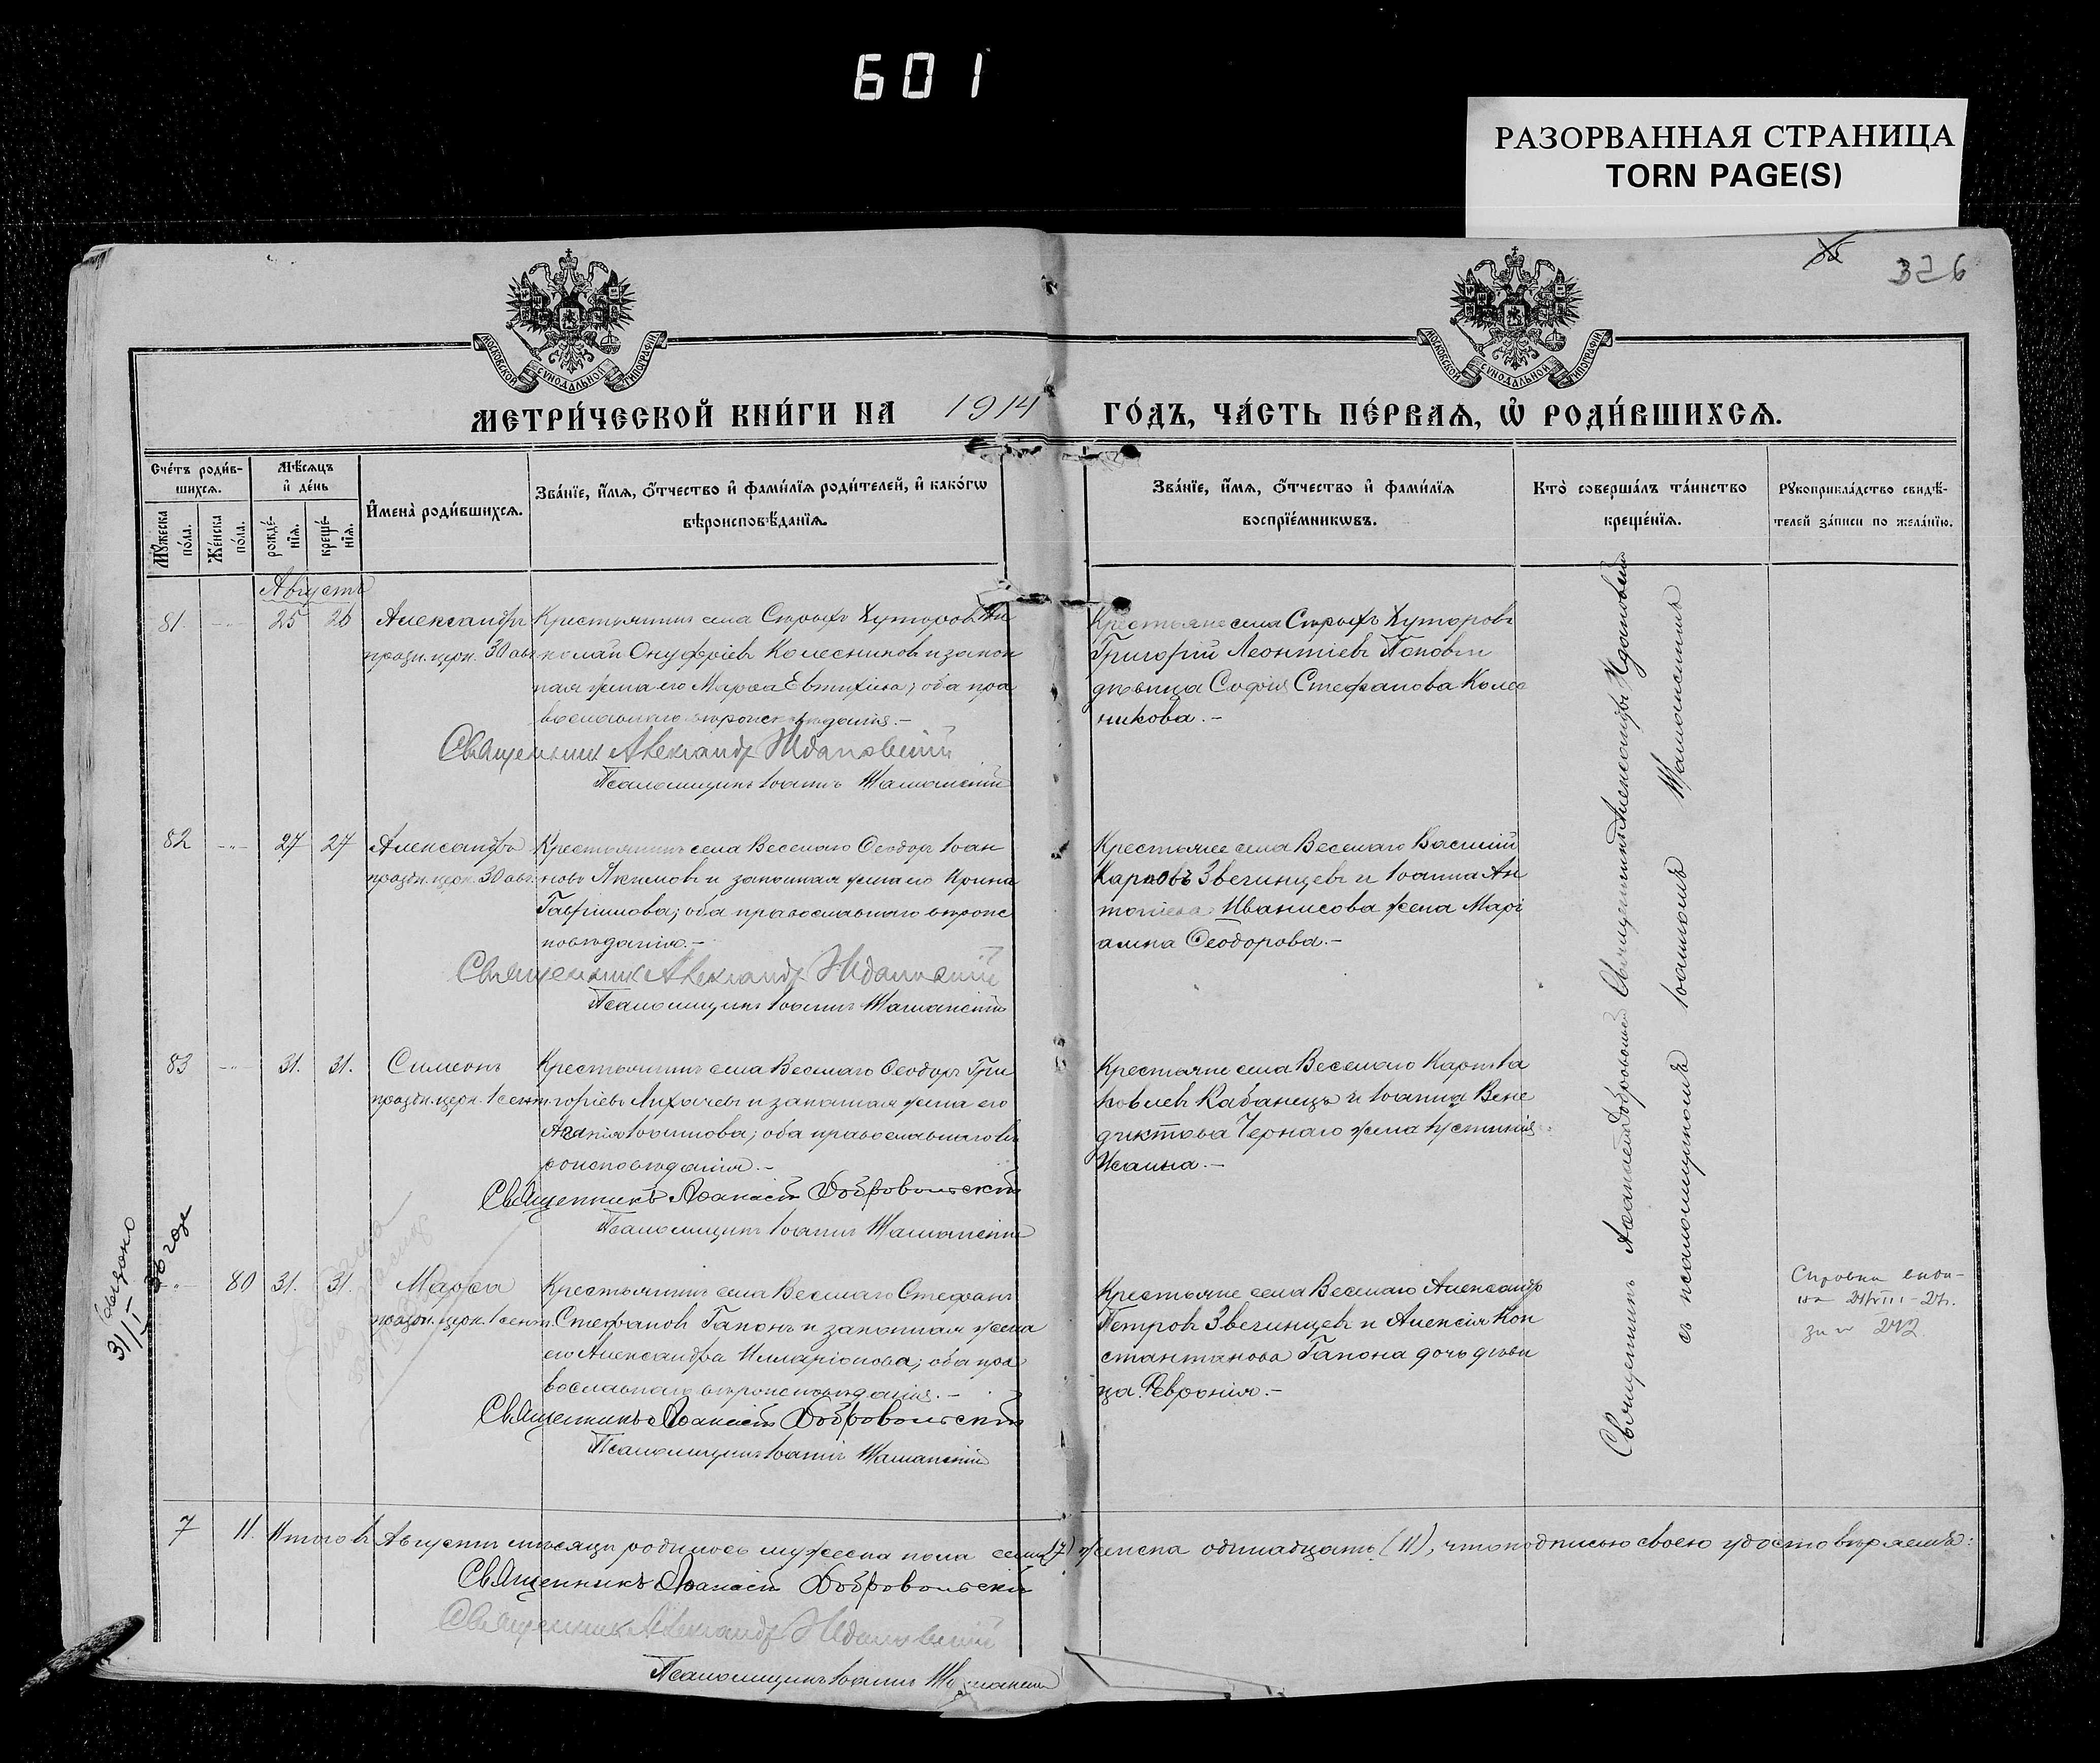 601
РАЗОРВАННАЯ СТРАНИЦА
TORN PAGE(S)
35
326
МОСКОВСКОЙ СѴНОДАЛЬНОЙ ТИПОГРАФІИ
МОСКОВСКОЙ СѴНОДАЛЬНОЙ ТИПОГРАФІИ
МЕТРИ́ЧЕСКОЙ КНИ́ГИ НА 1914 ГО́ДЪ, ЧА́СТЬ ПЕ́РВАѦ, Ѡ҆ РОДИ́ВШИХСѦ.
Сче́тъ роди́в-
шихсѧ.
Мꙋ́жеска по́ла.
Же́нска по́ла.
Мѣ́сѧцъ
и҆ де́нь
рожде́-
нїѧ.
креще́-
нїѧ.
И҆мена̀ роди́вшихсѧ.
Зва́нїе, и҆́мѧ, ѻ҆́тчество и҆ фами́лїѧ роди́телей, и҆ како́гѡ
вѣроисповѣ́данїѧ.
Зва́нїе, и҆́мѧ, ѻ҆́тчество и҆ фами́лїѧ
воспрїе́мникѡвъ.
Кто̀ соверша́лъ та́инство
креще́нїѧ.
Рꙋкоприкла́дство свидѣ́-
телей за́писи по жела́нїю.
Августъ
81. 25 26 Александръ
праздн. церк. 30 авг.
Крестьянинъ села Старыхъ Хуторовъ Ни
колай Онуфріевъ Колесниковъ и закон
ная жена его Марѳа Евтихіева; оба пра
вославнаго вѣроисповѣданія.-
Священникъ Александръ Ждановскій
Псаломщикъ Іоаннъ Шаманскій
Крестьяне села Старыхъ Хуторовъ
Григорій Леонтіевъ Поповъ и
дѣвица Софія Стефанова Колес
никова.-
82 27 27 Александръ
праздн. церк. 30 авг.
Крестьянинъ села Веселаго Ѳеодоръ Іоан
новъ Акимовъ и законная жена его Ирина
Гавріилова; оба православнаго вѣроис
повѣданія.-
Священникъ Александръ Ждановскій
Псаломщикъ Іоаннъ Шаманскій
Крестьяне села Веселаго Василій
Карповъ Звегинцевъ и Іоанна Ан
тоніева Иванисова жена Марі
амна Ѳеодорова.-
83 31. 31. Симеонъ
праздн. церк. 1 сент.
Крестьянинъ села Веселаго Ѳеодоръ Гри
горіевъ Лихачевъ и законная жена его
Іоаннова; оба православнаго вѣ
роисповѣданія.-
Священникъ Аѳанасій Добровольскій
Псаломщикъ Іоаннъ Шаманскій
Крестьяне села Веселаго Карпъ Іа
ковлевъ Кабанецъ и Іоанна Вене
диктова Чернаго жена Іустинія
Исаина.-
80 31. 31. Марѳа
праздн. церк. 1 сент.
Крестьянинъ села Веселаго Стефанъ
Стефановъ Гапонъ и законная жена
его Александра Илларіонова; оба пра
вославнаго вѣроисповѣданія.-
Священникъ Аѳанасій Добровольскій
Псаломщикъ Іоаннъ Шаманскій
Крестьяне села Веселаго Александръ
Петровъ Звегинцевъ и Алексія Кон
стантинова Гапона дочь дѣви
ца Февронія.-
Священникъ Аѳанасій Добровольскій Священникъ Александръ Ждановскій
съ псаломщикомъ Іоанномъ Шаманскимъ
Справка
за № 242
31/I 36 года
7 11. Итого въ Августѣ мѣсяцѣ родилось мужеска пола семь (7) женска одинадцать (11), что подписью своею удостовѣряемъ:
Священникъ Аѳанасій Добровольскій
Священникъ Александръ Ждановскій
Псаломщикъ Іоаннъ Шаманскій